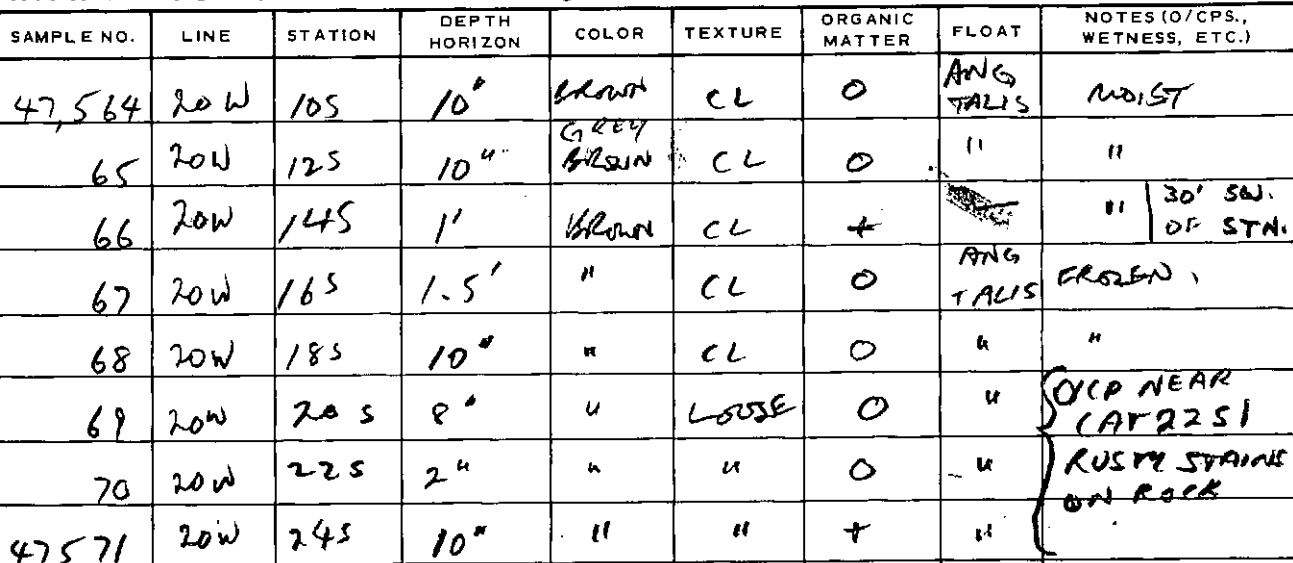 SAMPLE NO. LINE STATION DEPTH HORIZON COLOR TEXTURE ORGANIC MATTER FLOAT NOTES (O/CPS., WETNESS, ETC.)
47,564 20W 10S 10" BROWN CL O ANG TALIS MOIST
65 20W 12S 10" GREY BROWN CL O " "
66 20W 14S 1' BROWN CL + " 30' SW. OF STN.
67 20W 16S 1.5' " CL O ANG TALIS FROZEN.
68 20W 18S 10" " CL O " "
69 20W 20S 8" " LOOSE O " O/CP NEAR (AT 22S)
70 20W 22S 2" " " O " RUSTY STAINS ON ROCK
47571 20W 24S 10" " " + "